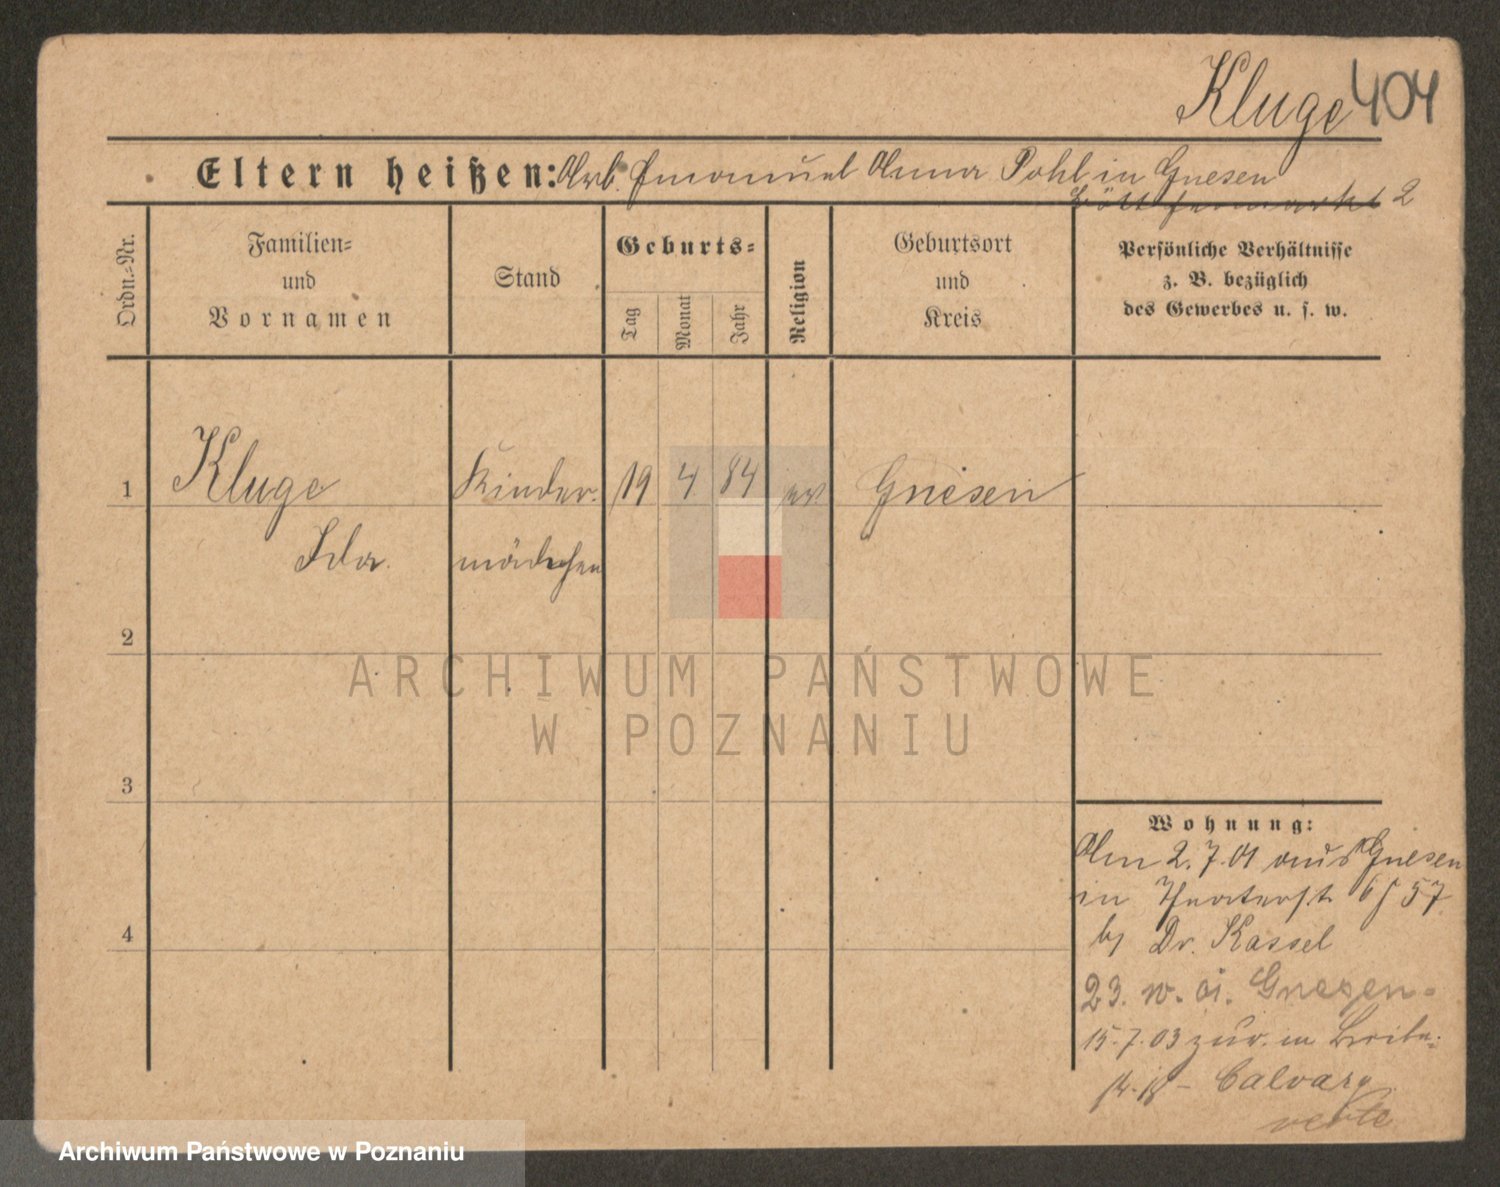 Kluge 404
Eltern heißen: Arb. Emanuel Anna Pohl in Gnesen
2
Ordn.-Nr.
Familien-
und
Vornamen
Stand
Geburts-
Tag
Monat
Jahr
Religion
Geburtsort
und
Kreis
Persönliche Verhältnisse
z. B. bezüglich
des Gewerbes u. s. w.
1 Kluge Kinder- 19 4 84 ev Gnesen
Ida mädchen
2
3
4
Wohnung:
Am 2.7.01 aus Gnesen
in Theaterst. 6 57
b/ Dr. Kassel
23. Gnesen
15.7.03 zur. in
18 - Calvary
verte
ARCHIWUM PAŃSTWOWE
W POZNANIU
Archiwum Państwowe w Poznaniu